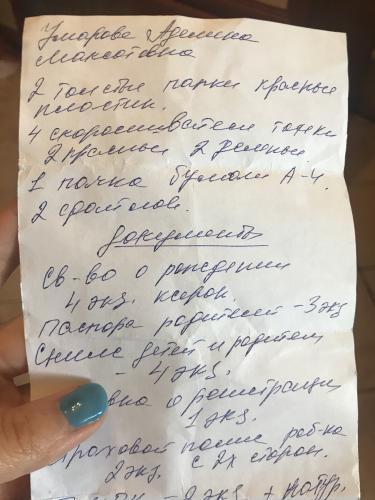 Умарова Аделина
Максотовна
2 толстые папки красные
пластик.
4 скоросшивателя тонки
2 красные 2 зеленые
1 пачка бумаги А-4.
2 фотогов.
Документы
Св-во о рождении
4 экз. ксерок.
Паспорта родителей - 3 экз
Снилс детей и родителей
- 4 экз.
вка о регистрации
1 экз.
траховой полис реб-ка
2 экз. с 2х сторон.